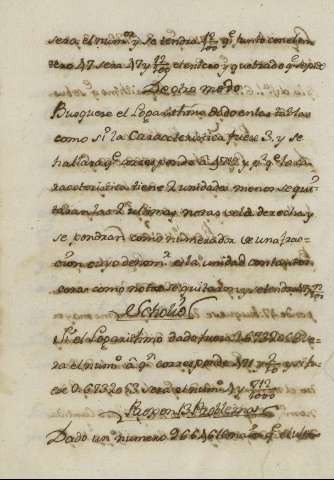 sera el num.º y se tendra 12/100 q.e junto con el en
tero 47 sera 47 y 12/100 el entero y quebrado q.e se pide
De otro modo
Busquese el Logarithmo dado en las tablas
como si la Caracteristica fuese 3. y se
hallara q.e corresponde à 4712 y p.r q.e la ca
racteristica tiene 2 unidades menos se qui
taran las 2 ultimas notas de la derecha y
se pondran como numerador de una frac
cion cuyo denom.r es la unidad con tantos
ceros como notas se quitaron y se tendra 47 12/100
Scholio
Si el Logarithmo dado fuera 2.6732063 se
ra el num.º à q.e corresponde 471 y 2/10 y si fu
ese 0.6732063 sera el num.º 4 y 712/1000
Problema
Dado un numero 266461